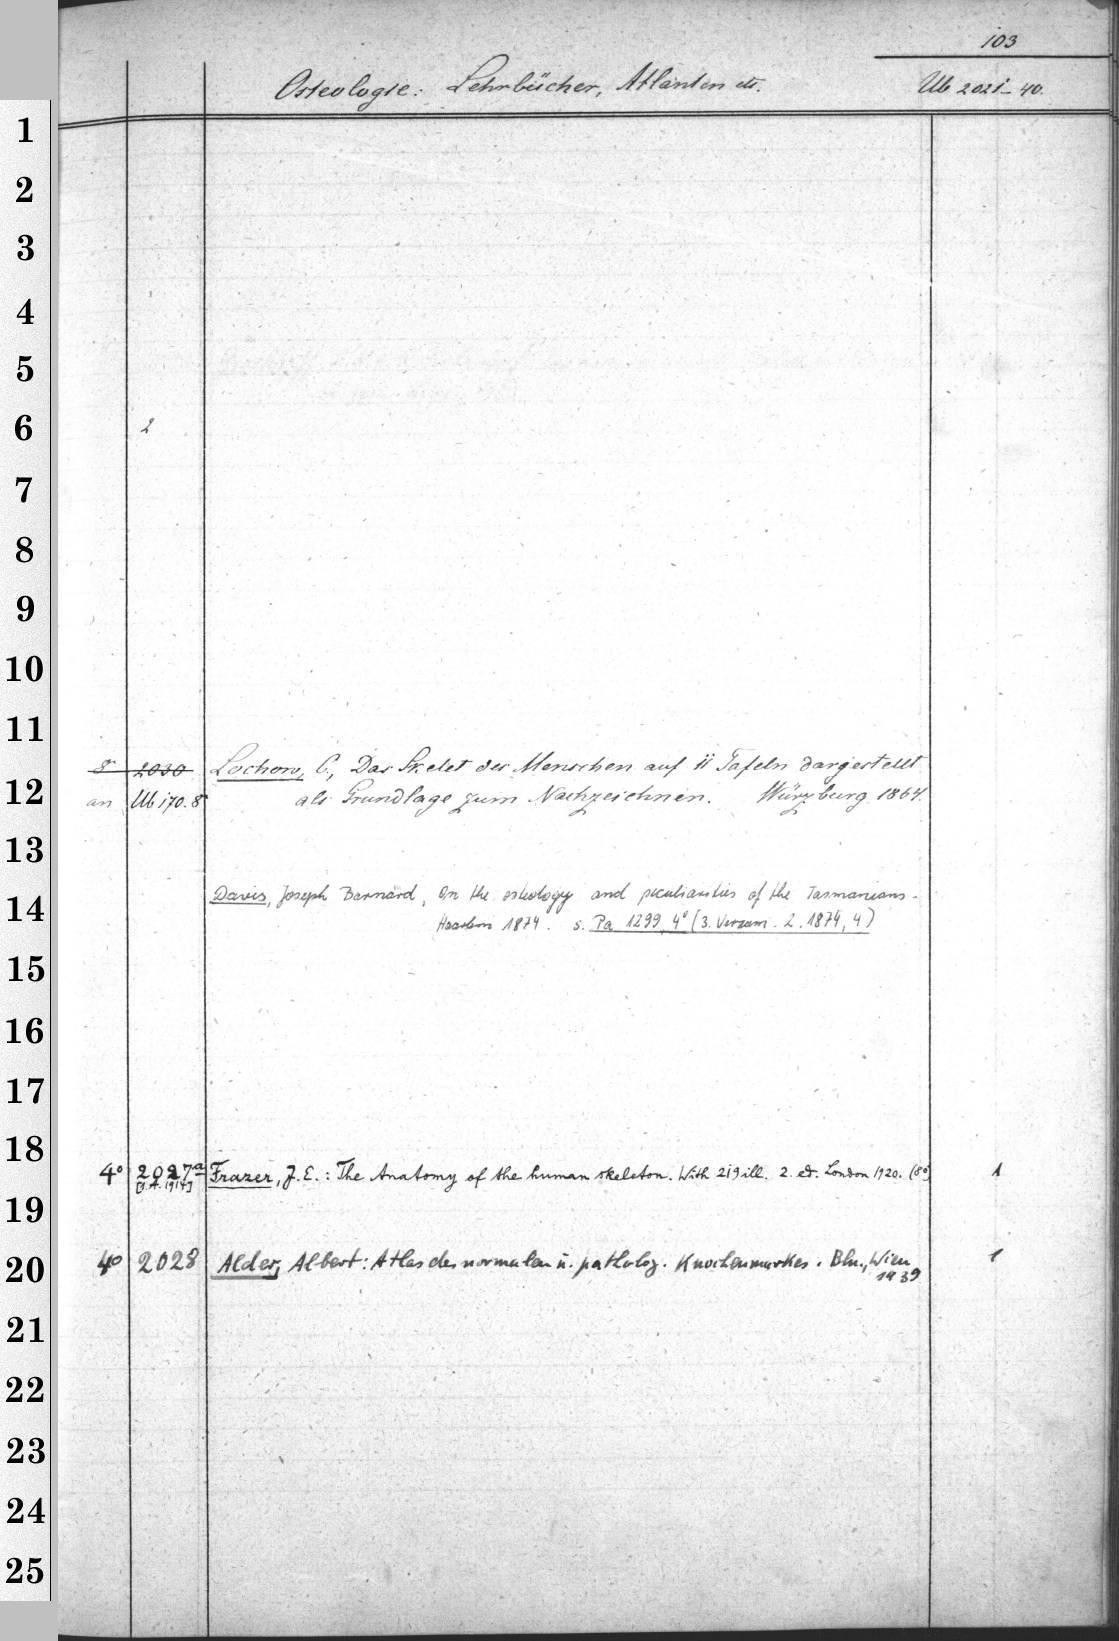 103
Osteologie: Lehrbücher, Atlanten etc. Ub 2021-40.
1
2
3
4
5
6 2
7
8
9
10
11
8° 2030 Lochow, C., Das Skelet des Menschen auf 11 Tafeln dargestellt
12 an Ub 170. 8° als Grundlage zum Nachzeichnen. Würzburg 1864.
13
Davis, Joseph Barnard, On the osteology and peculiarities of the Tasmanians.
14 Haarlem 1874. s. Pa 1299, 4° (3. Verzam. 2. 1874, 4)
15
16
17
18
4° 2027a Frazer, J. E.: The Anatomy of the human skeleton. With 219 ill. 2. ed. London 1920. (8°) 1
[1914]
19
20 4° 2028 Alder, Albert: Atlas des normalen u. patholog. Knochenmarkes. Bln., Wien 1
1939
21
22
23
24
25